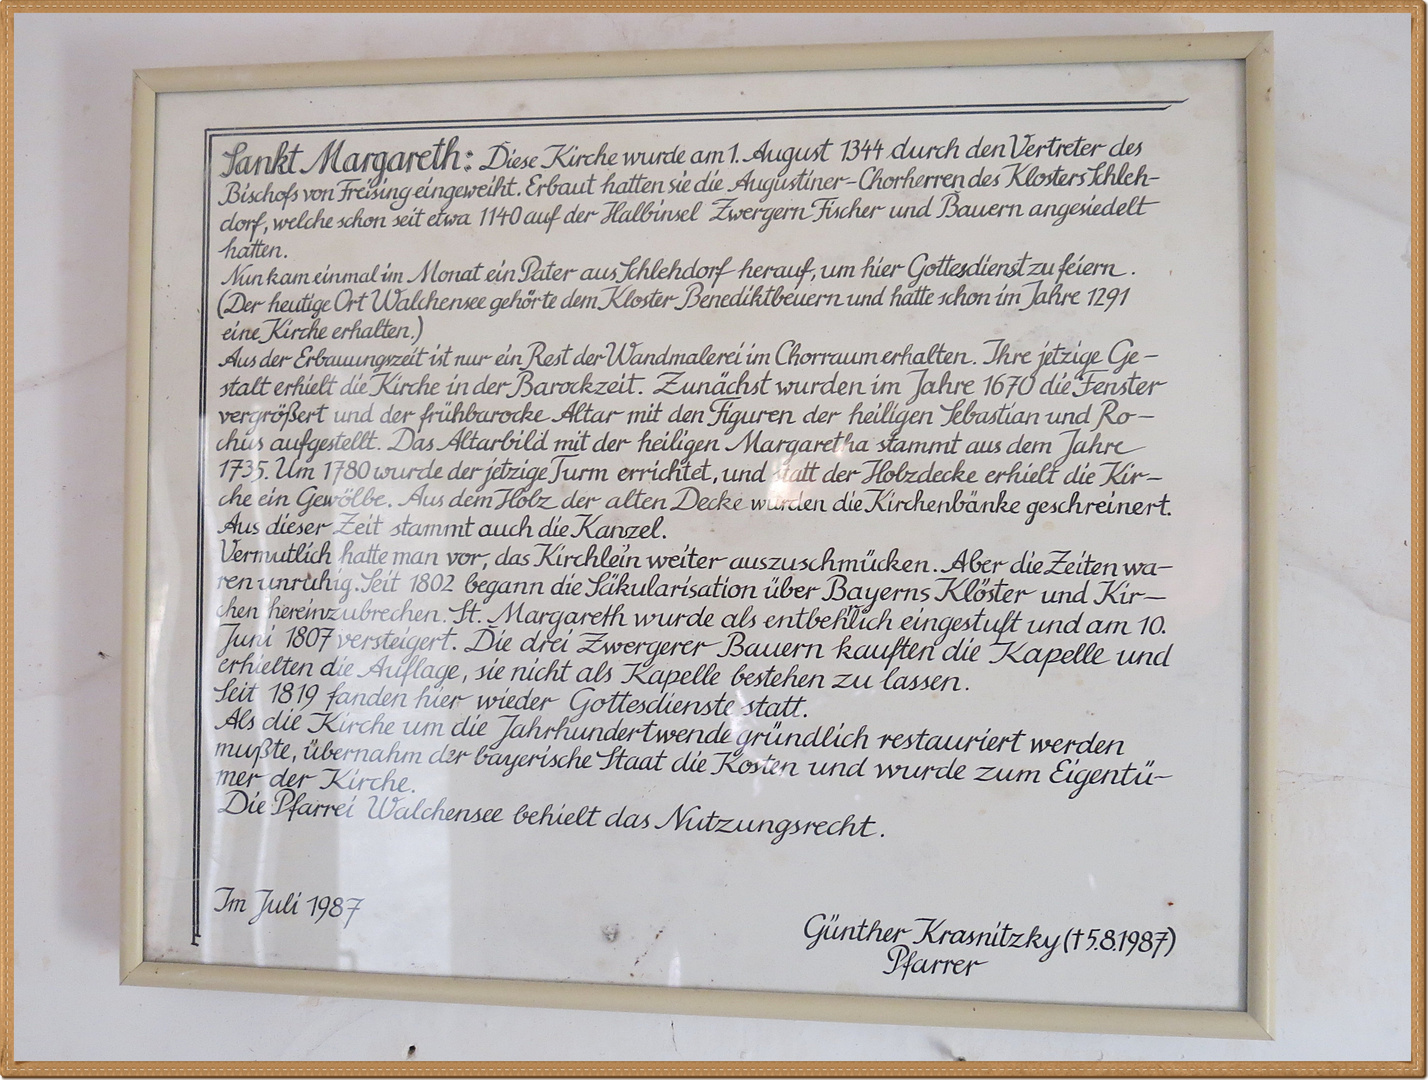 Sankt Margareth: Diese Kirche wurde am 1. August 1344 durch den Vertreter des
Bischofs von Freising eingeweiht. Erbaut hatten sie die Augustiner-Chorherren des Klosters Schleh-
dorf, welche schon seit etwa 1140 auf der Halbinsel Zwergern Fischer und Bauern angesiedelt
hatten.
Nun kam einmal im Monat ein Pater aus Schlehdorf herauf, um hier Gottesdienst zu feiern.
(Der heutige Ort Walchensee gehörte dem Kloster Benediktbeuern und hatte schon im Jahre 1291
eine Kirche erhalten.)
Aus der Erbauungszeit ist nur ein Rest der Wandmalerei im Chorraum erhalten. Ihre jetzige Ge-
stalt erhielt die Kirche in der Barockzeit. Zunächst wurden im Jahre 1670 die Fenster
vergrößert und der frühbarocke Altar mit den Figuren der heiligen Sebastian und Ro-
chus aufgestellt. Das Altarbild mit der heiligen Margaretha stammt aus dem Jahre
1735. Um 1780 wurde der jetzige Turm errichtet, und statt der Holzdecke erhielt die Kir-
che ein Gewölbe. Aus dem Holz der alten Decke wurden die Kirchenbänke geschreinert.
Aus dieser Zeit stammt auch die Kanzel.
Vermutlich hatte man vor, das Kirchlein weiter auszuschmücken. Aber die Zeiten wa-
ren unruhig. Seit 1802 begann die Säkularisation über Bayerns Klöster und Kir-
chen hereinzubrechen. St. Margareth wurde als entbehlich eingestuft und am 10.
Juni 1807 versteigert. Die drei Zwergerer Bauern kauften die Kapelle und
erhielten die Auflage, sie nicht als Kapelle bestehen zu lassen.
Seit 1819 fanden hier wieder Gottesdienste statt.
Als die Kirche um die Jahrhundertwende gründlich restauriert werden
mußte, übernahm der bayerische Staat die Kosten und wurde zum Eigentü-
mer der Kirche.
Die Pfarrei Walchensee behielt das Nutzungsrecht.
Im Juli 1987
Günther Krasnitzky († 5.8.1987)
Pfarrer